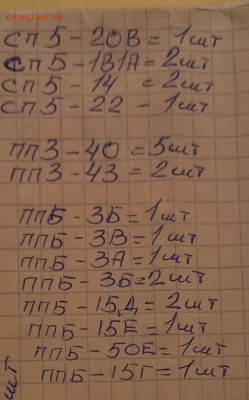 СП5-20В = 1шт
СП5-1В1А = 2шт
СП5-14 = 2шт
СП5-22 - 1шт
ПП3-40 = 5шт
ПП3-43 = 2шт
ППБ-3Б = 1шт
ППБ-3В = 1шт
ППБ-3А = 1шт
ППБ-3Б = 2шт
ППБ-15Д = 2шт
ППБ-15Е = 1шт
ППБ-50Е = 1шт
ППБ-15Г = 1шт
шт